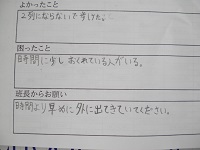 よかったこと
2列にならないで歩けた。
困ったこと
時間に少しおくれている人がいる。
班長からお願い
時間より早めに外に出てきていてください。